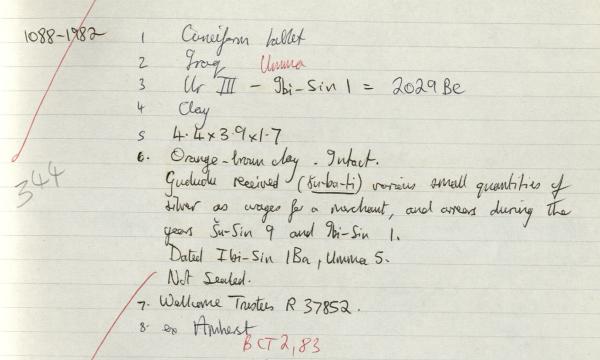 1088-1982
1 Cuneiform tablet
2 Iraq Umma
3 Ur III - Ibi-Sin 1 = 2029 BC
4 Clay
5 4.4x3.9x1.7
6. Orange-brown clay. Intact.
344
Gududu received (šu-ba-ti) various small quantities of
silver as wages for a merchant, and arrears during the
years Šu-Sin 9 and Ibi-Sin 1.
Dated Ibi-Sin 1Ba, Umma 5.
Not Sealed.
7. Wellcome Trustees R 37852.
8. ex Amherst
BCT 2, 83